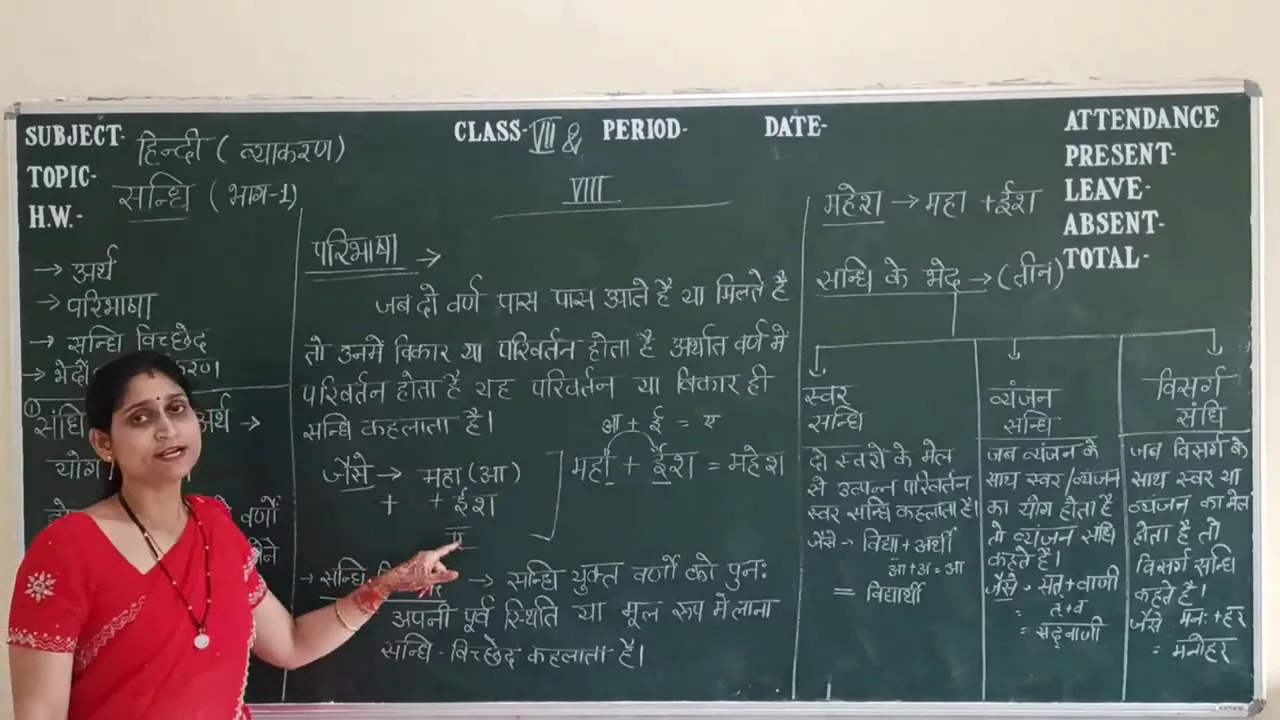 SUBJECT- हिन्दी ( व्याकरण)
TOPIC- सन्धि ( भाग-1)
H.W.-
CLASS- VII & VIII
PERIOD-
DATE-
ATTENDANCE
PRESENT-
LEAVE-
ABSENT-
TOTAL-
→ अर्थ
→ परिभाषा
→ सन्धि विच्छेद
→ भेदों
① संधि अर्थ →
योग
वर्णों
परिभाषा →
जब दो वर्ण पास पास आते है या मिलते है
तो उनमें विकार या परिवर्तन होता है अर्थात वर्ण में
परिवर्तन होता है यह परिवर्तन या विकार ही
सन्धि कहलाता है।
जैसे → महा (आ)
+ + ईश
ए
आ + ई = ए
महा + ईश = महेश
→ सन्धि → सन्धि युक्त वर्णो को पुनः
अपनी पूर्व स्थिति या मूल रूप में लाना
सन्धि - विच्छेद कहलाता है।
महेश → महा + ईश
सन्धि के भेद → (तीन)
स्वर
सन्धि
दो स्वरों के मेल
से उत्पन्न परिवर्तन
स्वर सन्धि कहलाता है।
जैसे → विद्या + अर्थी
आ + अ = आ
= विद्यार्थी
व्यंजन
सन्धि
जब व्यंजन के
साथ स्वर / व्यंजन
का योग होता है
तो व्यंजन संधि
कहते है।
जैसे → सत् + वाणी
त + व
= सद्वाणी
विसर्ग
संधि
जब विसर्ग के
साथ स्वर या
व्यंजन का मेल
होता है तो
विसर्ग सन्धि
कहते है।
जैसे मनः + हर
= मनोहर